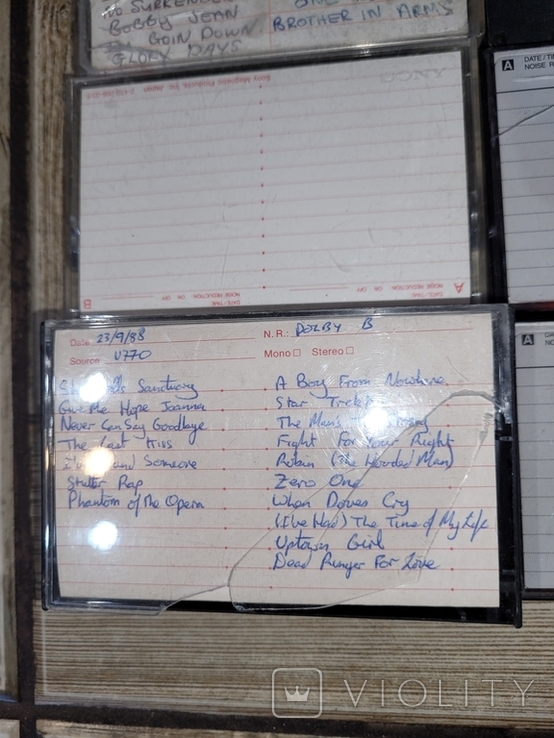 SURRENDER
BOBBY JEAN
GOIN DOWN
GLORY DAYS
BROTHER IN ARMS
Sony Magnetic Products Inc. Japan
SONY
A
DATE/TIME
NOISE REDUCTION ON OFF
B
DATE/TIME
NOISE REDUCTION ON OFF
A DATE/TI
NOISE R
A
Date 23/9/88
Source U770
N.R.: DOLBY B
Mono Stereo
Sanctuary
Give Me Hope Joanna
Never Can Say Goodbye
The Last Kiss
and Someone
Stutter Rap
Phantom of the Opera
A Boy From Nowhere
Star Trekkin
The Man's
Fight For Your Right
Robin (The Hooded Man)
Zero One
When Doves Cry
(I've Had) The Time of My Life
Uptown Girl
Dead Ringer For Love
VIOLITY